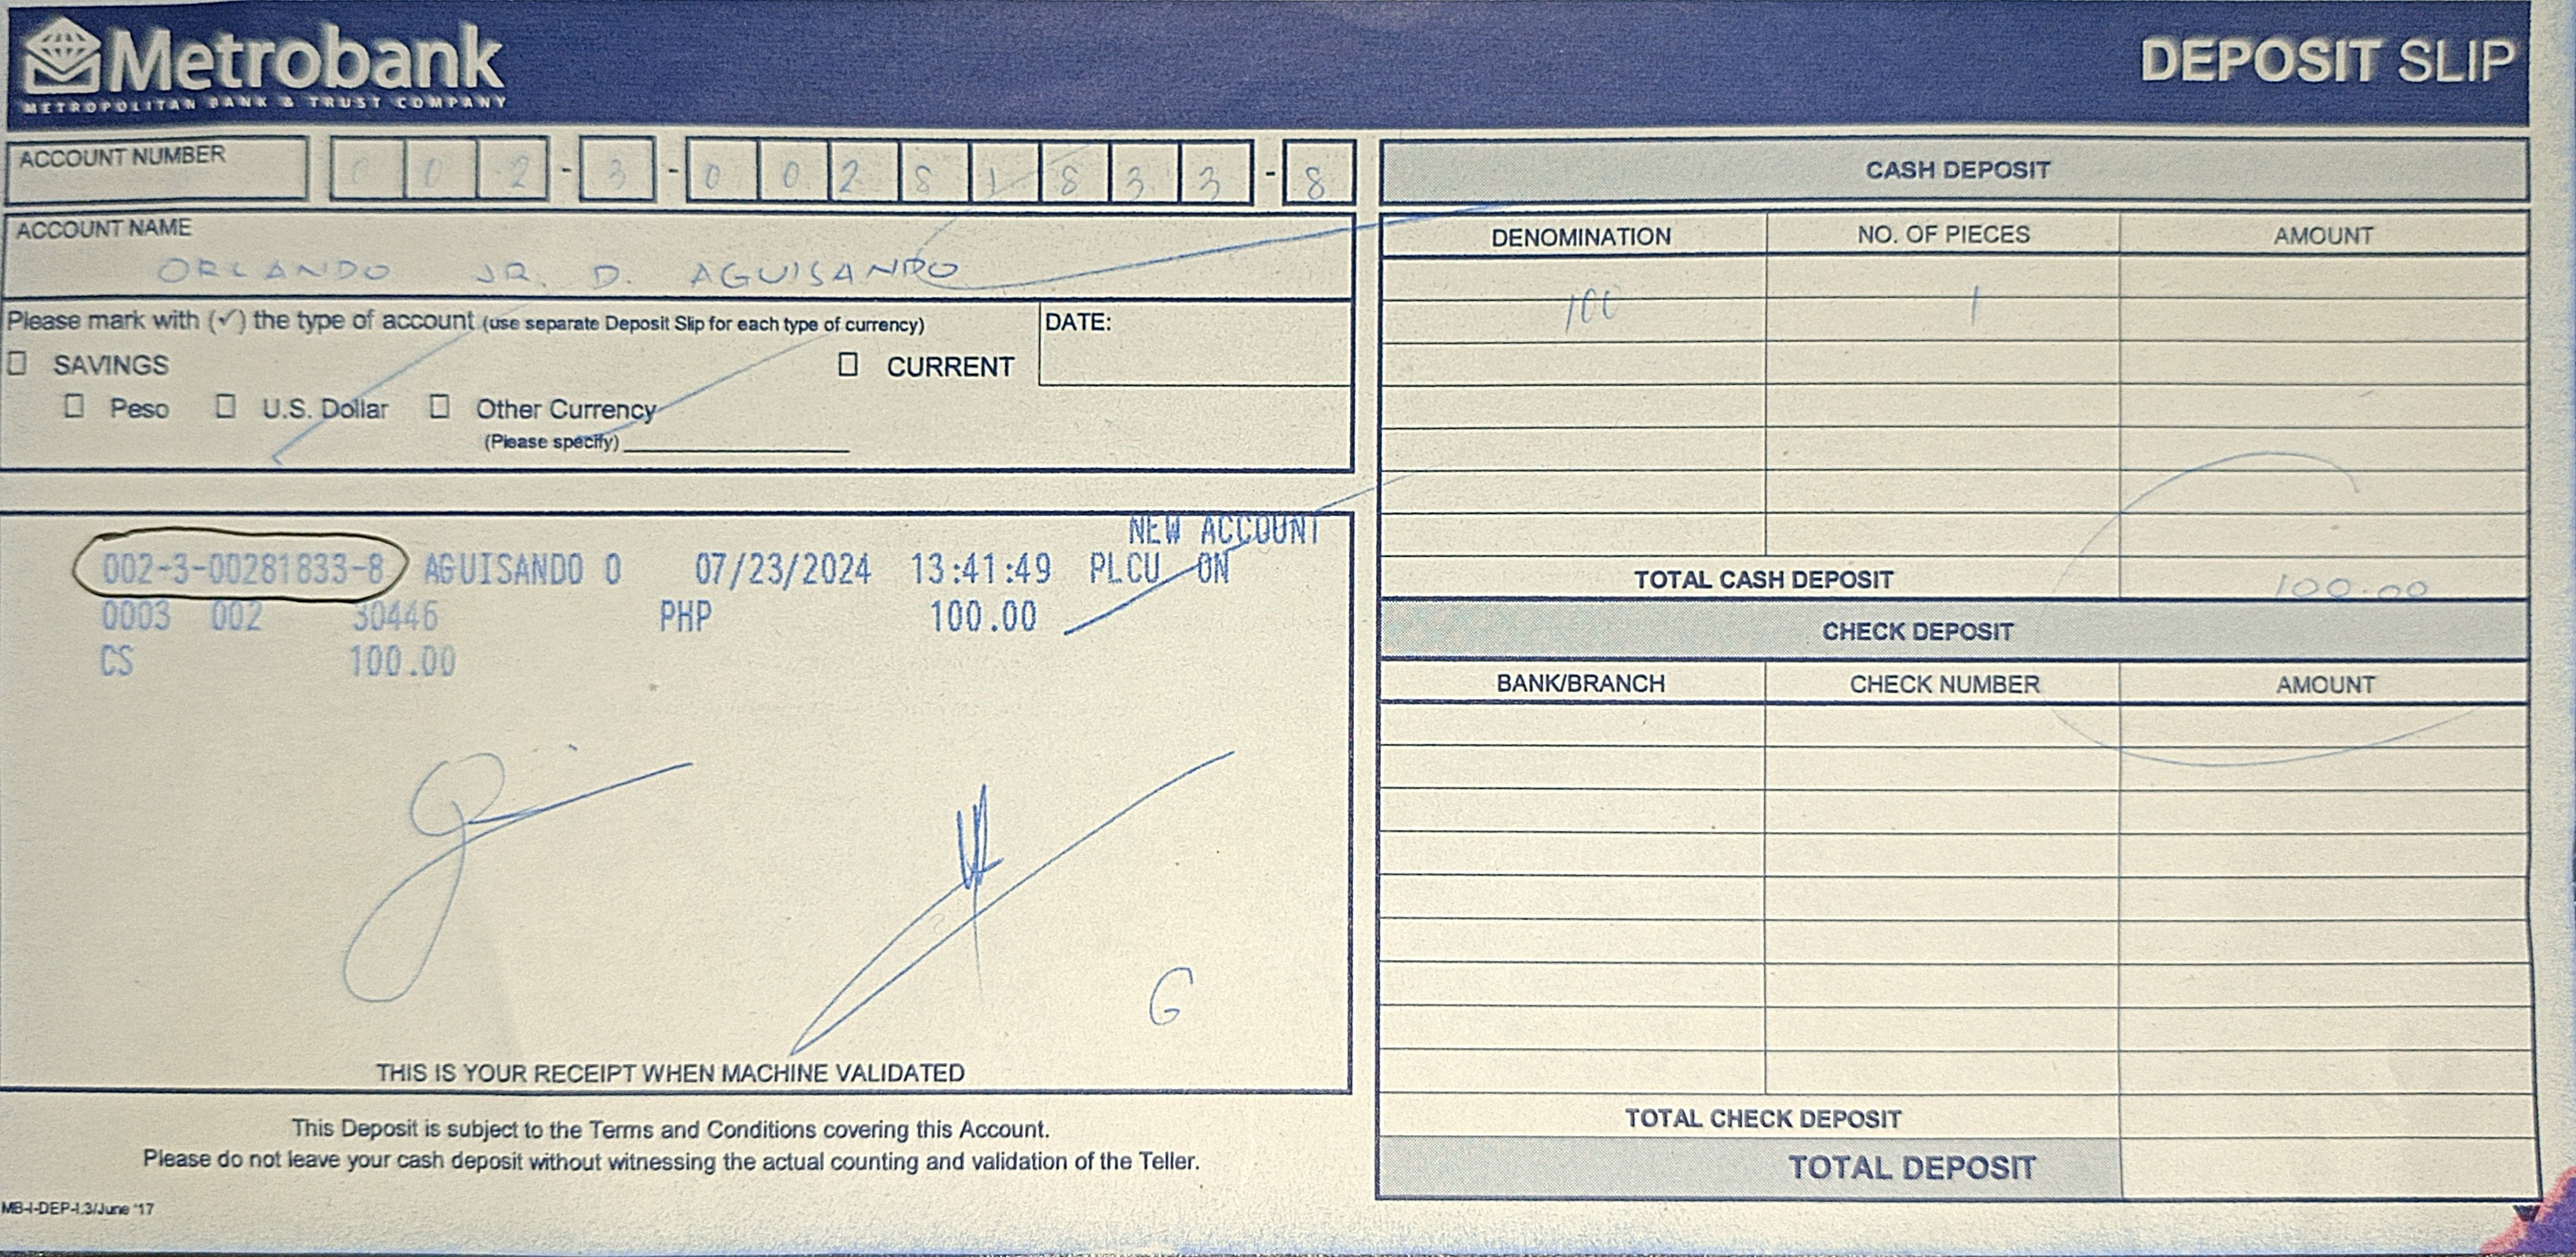 Metrobank
METROPOLITAN BANK & TRUST COMPANY
DEPOSIT SLIP
ACCOUNT NUMBER 0 0 2 - 3 - 0 0 2 8 1 8 3 3 - 8
ACCOUNT NAME
ORLANDO JR. D. AGUISANDO
Please mark with (✓) the type of account (use separate Deposit Slip for each type of currency)
DATE:
☐ SAVINGS ☐ CURRENT
☐ Peso ☐ U.S. Dollar ☐ Other Currency
(Please specify)
NEW ACCOUNT
002-3-00281833-8 AGUISANDO O 07/23/2024 13:41:49 PLCU ON
0003 002 30446 PHP 100.00
CS 100.00
G
THIS IS YOUR RECEIPT WHEN MACHINE VALIDATED
This Deposit is subject to the Terms and Conditions covering this Account.
Please do not leave your cash deposit without witnessing the actual counting and validation of the Teller.
MB-I-DEP-I.3/June '17
CASH DEPOSIT
DENOMINATION NO. OF PIECES AMOUNT
100 1
TOTAL CASH DEPOSIT 100.00
CHECK DEPOSIT
BANK/BRANCH CHECK NUMBER AMOUNT
TOTAL CHECK DEPOSIT
TOTAL DEPOSIT